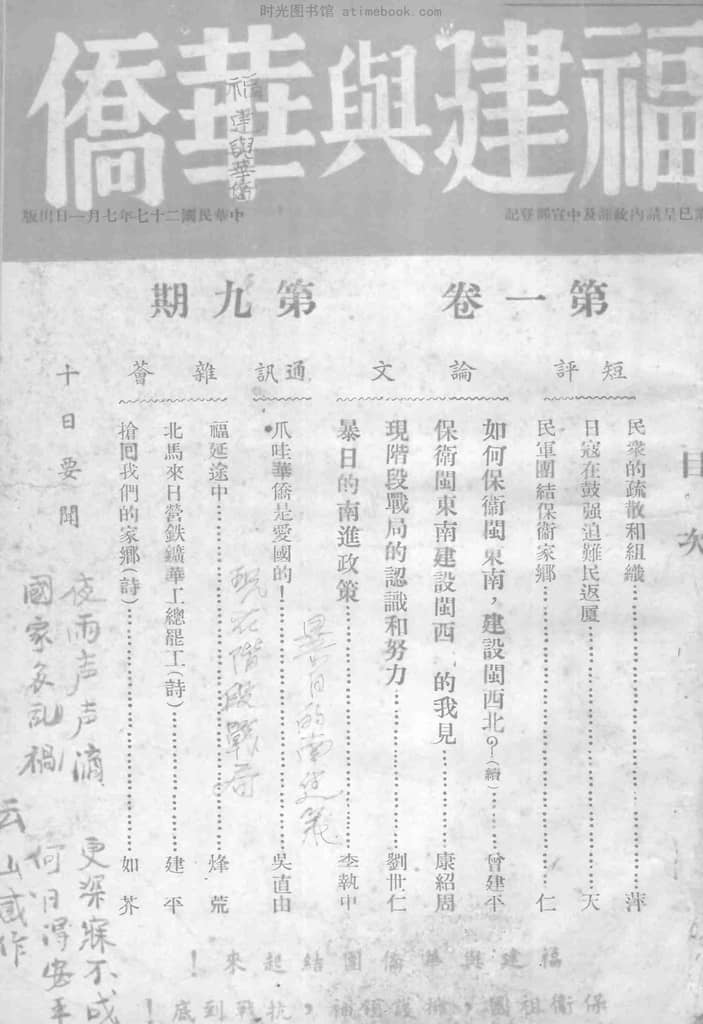 时光图书馆 atimebook.com
福建與華僑
福建與華僑
已呈請內政部及中宣部登記
中華民國二十七年七月一日出版
第一卷 第九期
目次
短評
民衆的疏散和組織……萍
日寇在鼓强迫難民返厦……天
民軍團結保衞家鄉……仁
論文
如何保衞閩東南，建設閩西北？(續)……曾建平
保衛閩東南建設閩西 的我見……康紹周
現階段戰局的認識和努力……劉世仁
暴日的南進政策……李執中
通訊
爪哇華僑是愛國的！……吳直由
雜薈
福延途中……烽荒
北馬來日營鉄鑛華工總罷工(詩)……建平
搶回我們的家鄉(詩)……如芥
十日要聞
暴日的南進策
現在階段戰局
夜雨声声滴 更深寐不成
國家多乱禍 何日得安平
云山感作
福建與華僑團結起來！
保衛祖國，擁護領袖，抗戰到底！